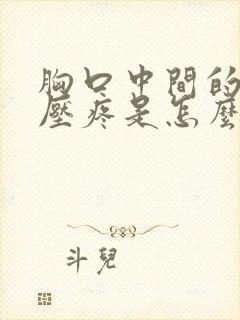 胸口中間的
壓疼是怎麼
斗兒